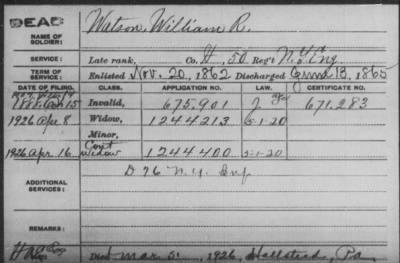 DEAD
NAME OF SOLDIER: Watson, William R.
SERVICE: Late rank, Co. H, 50 Reg't N.Y. Eng
TERM OF SERVICE: Enlisted Nov. 20, 1862 Discharged June 13, 1865
DATE OF FILING. CLASS. APPLICATION NO. LAW. CERTIFICATE NO.
1888 15 Invalid, 675.901 671.283
1926 Apr. 8 Widow, 1244213 5-1-20
Minor,
1926 Apr. 16 Cont Widow 1244400 5-1-20
ADDITIONAL SERVICES: D 76 N.Y. Inf
REMARKS:
Died Mar 5, 1926, Hallstead, Pa.